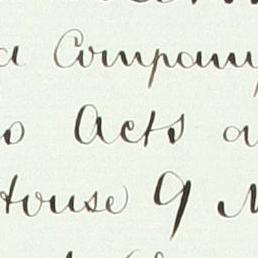 a Company
Acts
House 9